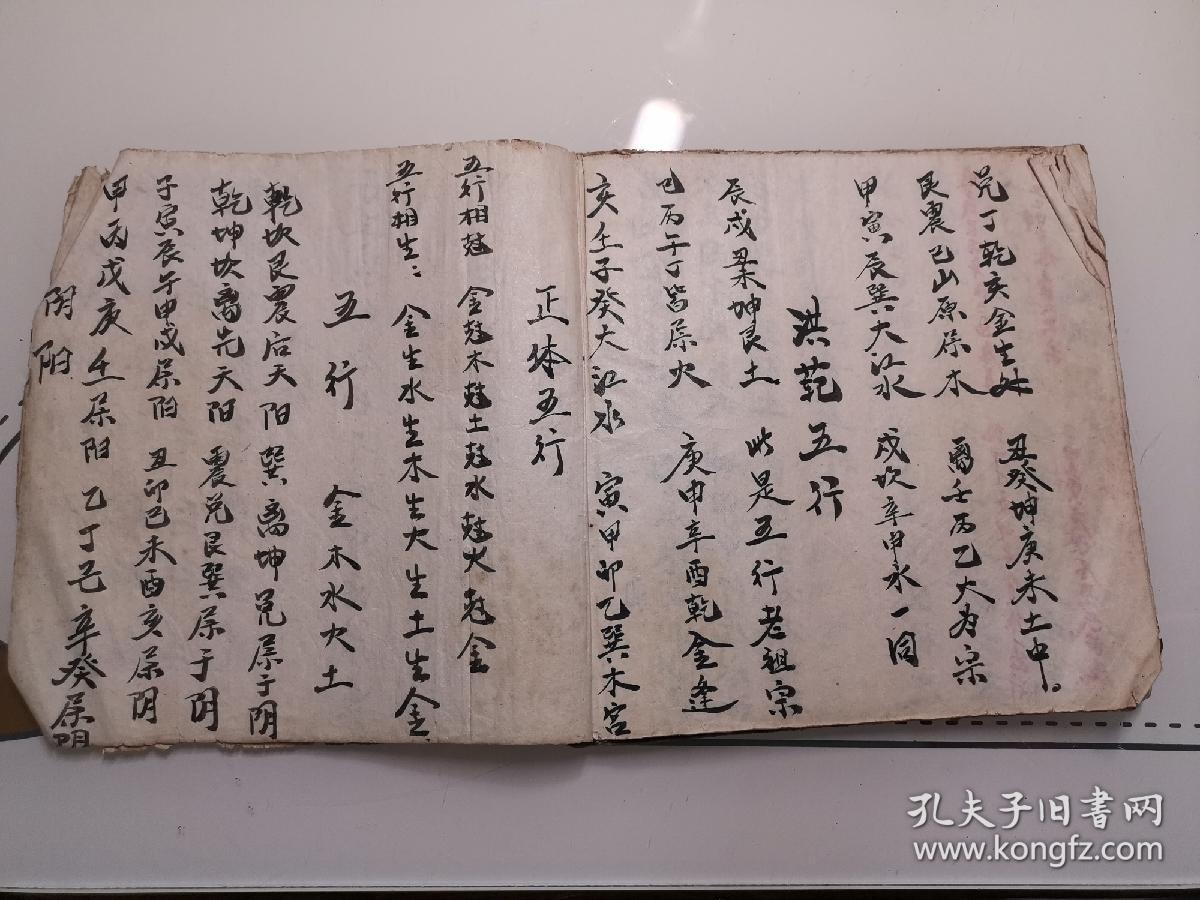 阴阳
甲丙戊庚壬属阳 乙丁己辛癸属阴
子寅辰午申戌属阳 丑卯巳未酉亥属阴
乾坤坎离先天阳 震兑艮巽属于阴
乾坎艮震后天阳 巽离坤兑属于阴
五行 金木水火土
五行相生：金生水生木生火生土生金
五行相尅 金尅木尅土尅水尅火尅金
正体五行
亥壬子癸大江水 寅甲卯乙巽木宫
巳丙午丁皆属火 庚申辛酉乾金逢
辰戌丑未坤艮土 此是五行老祖宗
洪范五行
甲寅辰巽大江水 戌坎辛申水一同
艮震巳山原属木 离壬丙乙火为宗
兑丁乾亥金生处 丑癸坤庚未土中。
孔夫子旧书网
www.kongfz.com